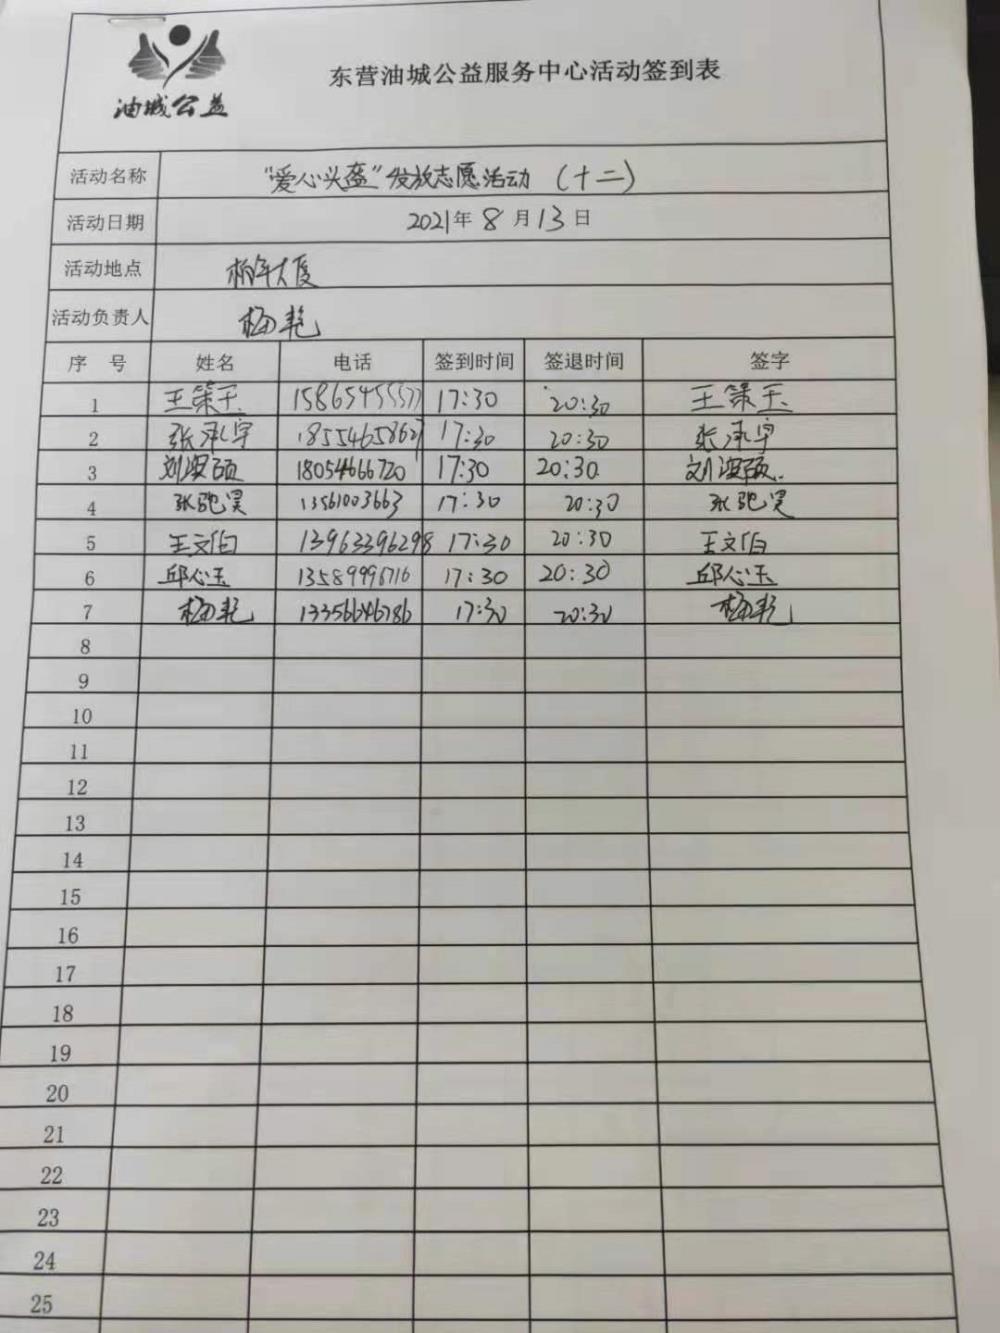 油城公益
东营油城公益服务中心活动签到表
活动名称 "爱心头盔"发放志愿活动（十二）
活动日期 2021年8月13日
活动地点 大厦
活动负责人 梅艳
序 号 姓名 电话 签到时间 签退时间 签字
1 王策玉 17:30 20:30 王策玉
2 张承宇 18554658627 17:30 20:30 张承宇
3 刘 硕 18054666720 17:30 20:30 刘 硕
4 张驰昊 13561003663 17:30 20:30 张驰昊
5 王文伯 13963396298 17:30 20:30 王文伯
6 邱心玉 13589996716 17:30 20:30 邱心玉
7 梅艳 13356646786 17:30 20:30 梅艳
8
9
10
11
12
13
14
15
16
17
18
19
20
21
22
23
24
25